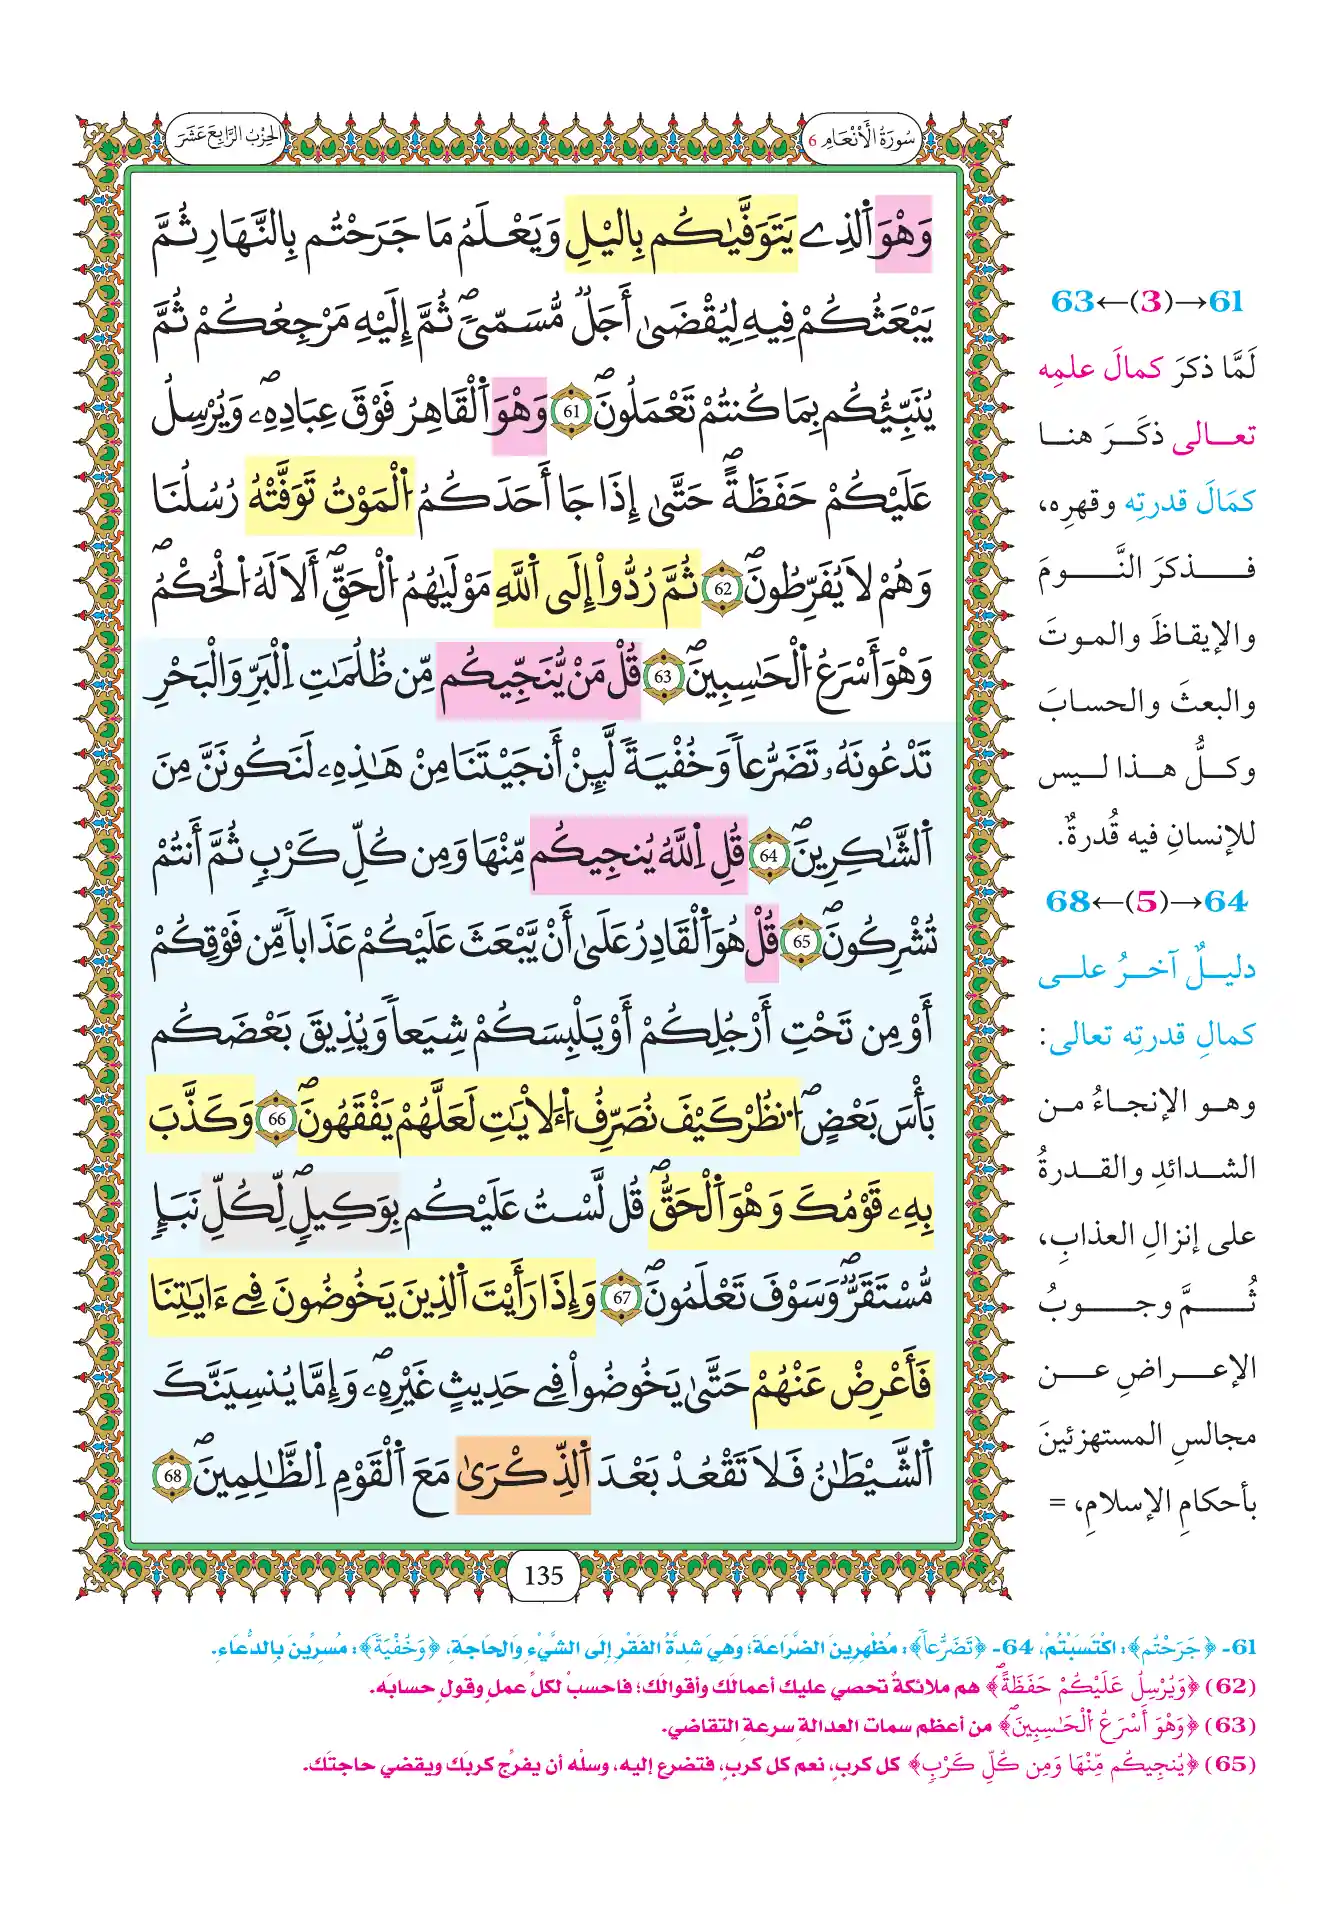 سُورَةُ الْأَنْعَامِ 6
الحِزْبُ الرَّابِعَ عَشَرَ
وَهْوَ اَ۬لذِے يَتَوَفَّيٰكُم بِاليْلِ وَيَعْلَمُ مَا جَرَحْتُم بِالنَّهَارِ ثُمَّ
يَبْعَثُكُمْ فِيهِ لِيُقْضَىٰ أَجَلٞ مُّسَمّىٗۖ ثُمَّ إِلَيْهِ مَرْجِعُكُمْ ثُمَّ
يُنَبِّئُكُم بِمَا كُنتُمْ تَعْمَلُونَۖ 61 وَهْوَ اَ۬لْقَاهِرُ فَوْقَ عِبَادِهِۦۖ وَيُرْسِلُ
عَلَيْكُمْ حَفَظَةًۖ حَتَّىٰ إِذَا جَا أَحَدَكُمُ اُ۬لْمَوْتُ تَوَفَّتْهُ رُسُلُنَا
وَهُمْ لَا يُفَرِّطُونَۖ 62 ثُمَّ رُدُّواْ إِلَى اَ۬للَّهِ مَوْلَيٰهُمُ اُ۬لْحَقِّۖ أَلَا لَهُ اُ۬لْحُكْمُ
وَهْوَ أَسْرَعُ اُ۬لْحَٰسِبِينَۖ 63 قُلْ مَنْ يُّنَجِّيكُم مِّن ظُلُمَٰتِ اِ۬لْبَرِّ وَالْبَحْرِ
تَدْعُونَهُۥ تَضَرُّعاٗ وَخُفْيَةٗ لَّئِنْ أَنجَيْتَنَا مِنْ هَٰذِهِۦ لَنَكُونَنَّ مِنَ
اَ۬لشَّٰكِرِينَۖ 64 قُلِ اِ۬للَّهُ يُنجِيكُم مِّنْهَا وَمِن كُلِّ كَرْبٖ ثُمَّ أَنتُمْ
تُشْرِكُونَۖ 65 قُلْ هُوَ اَ۬لْقَادِرُ عَلَىٰ أَنْ يَّبْعَثَ عَلَيْكُمْ عَذَاباٗ مِّن فَوْقِكُمْ
أَوْ مِن تَحْتِ أَرْجُلِكُمْ أَوْ يَلْبِسَكُمْ شِيَعاٗ وَيُذِيقَ بَعْضَكُم
بَأْسَ بَعْضٍۖ اُ۟نظُرْ كَيْفَ نُصَرِّفُ اُ۬لَأيَٰتِ لَعَلَّهُمْ يَفْقَهُونَۖ 66 وَكَذَّبَ
بِهِۦ قَوْمُكَ وَهْوَ اَ۬لْحَقُّۖ قُل لَّسْتُ عَلَيْكُم بِوَكِيلٖۖ لِّكُلِّ نَبَإٖ
مُّسْتَقَرّٞۖ وَسَوْفَ تَعْلَمُونَۖ 67 وَإِذَا رَأَيْتَ اَ۬لذِينَ يَخُوضُونَ فِےٓ ءَايَٰتِنَا
فَأَعْرِضْ عَنْهُمْ حَتَّىٰ يَخُوضُواْ فِے حَدِيثٍ غَيْرِهِۦۖ وَإِمَّا يُنسِيَنَّكَ
اَ۬لشَّيْطَٰنُ فَلَا تَقْعُدْ بَعْدَ اَ۬لذِّكْرَىٰ مَعَ اَ۬لْقَوْمِ اِ۬لظَّٰلِمِينَۖ 68
135
61→(3)←63
لَمَّا ذكرَ كمالَ علمِه
تعالى ذكَرَ هنا
كمَالَ قدرتِه وقهرِه،
فذكرَ النَّومَ
والإيقاظَ والموتَ
والبعثَ والحسابَ
وكلُّ هذا ليس
للإنسانِ فيه قُدرةٌ.
64→(5)←68
دليلٌ آخرُ على
كمالِ قدرتِه تعالى:
وهو الإنجاءُ من
الشدائدِ والقدرةُ
على إنزالِ العذابِ،
ثُمَّ وجوبُ
الإعراضِ عن
مجالسِ المستهزئينَ
بأحكامِ الإسلامِ، =
61- ﴿جَرَحْتُم﴾: اكْتَسَبْتُمْ، 64- ﴿تَضَرُّعاٗ﴾: مُظْهِرِينَ الضَّرَاعَةَ؛ وَهِيَ شِدَّةُ الفَقْرِ إلَى الشَّيْءِ وَالحَاجَةِ، ﴿وَخُفْيَةٗ﴾: مُسِرِّينَ بِالدُّعَاءِ.
(62) ﴿وَيُرْسِلُ عَلَيْكُمْ حَفَظَةًۖ﴾ هم ملائكةٌ تحصي عليك أعمالَك وأقوالَك؛ فاحسبْ لكلِّ عملٍ وقولٍ حسابَه.
(63) ﴿وَهْوَ أَسْرَعُ اُ۬لْحَٰسِبِينَۖ﴾ من أعظم سمات العدالة سرعة التقاضي.
(65) ﴿يُنجِيكُم مِّنْهَا وَمِن كُلِّ كَرْبٖ﴾ كل كربٍ، نعم كل كربٍ، فتضرع إليه، وسلْه أن يفرِّج كربَك ويقضي حاجتَك.